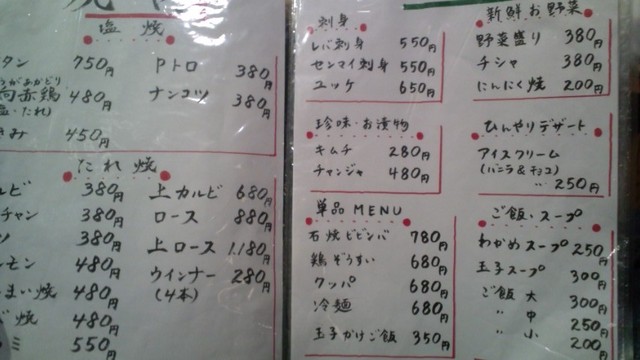 塩焼
タン 750円
Pトロ 380円
向赤鶏 480円
ナンコツ 380円
塩・たれ)
450円
たれ焼
ルビ 380円
上カルビ 680円
チャン 380円
ロース 880円
380円
上ロース 1.180円
ルモン 480円
ウインナー 280円
(4本)
まい焼 480円
焼 480円
ミ 550円
刺身
レバ刺身 550円
センマイ刺身 550円
ユッケ 650円
珍味・お漬物
キムチ 280円
チャンジャ 480円
単品MENU
石焼ビビンバ 780円
鶏ぞうすい 680円
クッパ 680円
冷麺 680円
玉子かけご飯 350円
新鮮お野菜
野菜盛り 380円
チシャ 380円
にんにく焼 200円
ひんやりデザート
アイスクリーム
(バニラ&チョコ)
〃 250円
ご飯・スープ
わかめスープ 250円
玉子スープ 300円
ご飯 大 300円
〃 中 250円
〃 小 200円